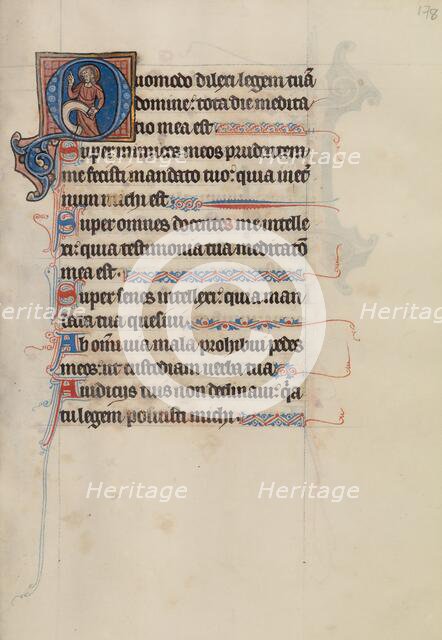 178
Quomodo dilexi legem tuā
domine: tota die medita
tio mea est.
Super inimicos meos prudentem
me fecisti mandato tuo: quia in et̄
num michi est.
Super omnes docentes me intelle
xi: quia testimonia tua meditatio
mea est.
Super senes intellexi: quia man
data tua quesiui.
Ab omī uia mala prohibui pedes
meos: ut custodiam uerba tua.
A iudiciis tuis non declinaui: q̄a
tu legem posuisti michi.
Heritage Heritage Heritage
Heritage Heritage
Heritage Heritage